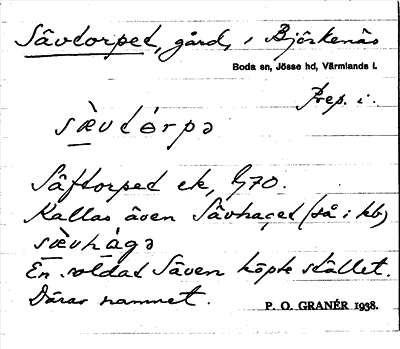 Sävtorpet, gård, i Björkenäs
Boda sn, Jösse hd, Värmlands l.
Prep. i.
sæ̀vtórpə
Säftorpet ek, G70.
Kallas även Sävhaget (så i kb)
sæ̀vhágə
En soldat Säven köpte stället.
Därav namnet.
P. O. GRANÉR 1938.